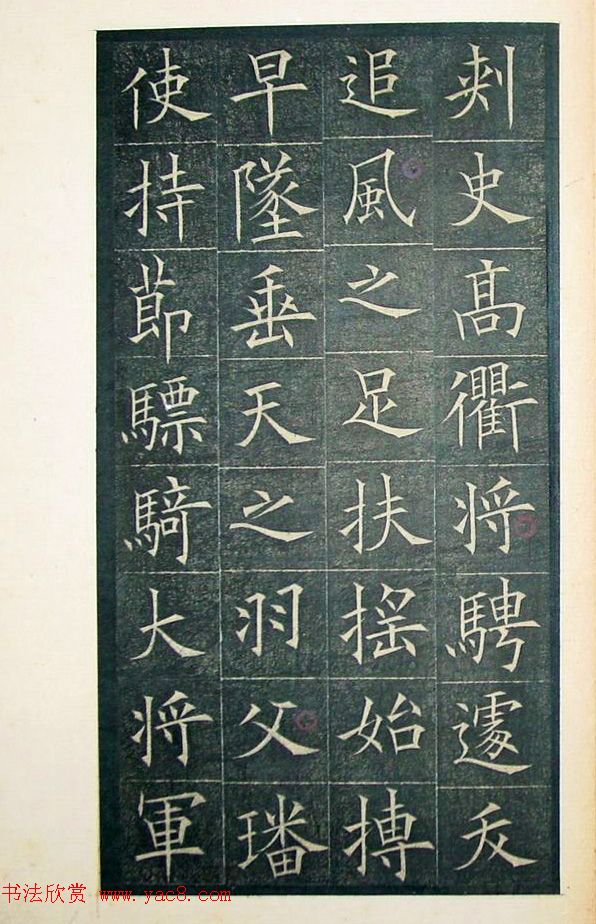 刾史髙衢将騁遽夭
追風之足扶搖始搏
早墜垂天之羽父璠
使持莭驃騎大将軍
书法欣赏 www.yac8.com